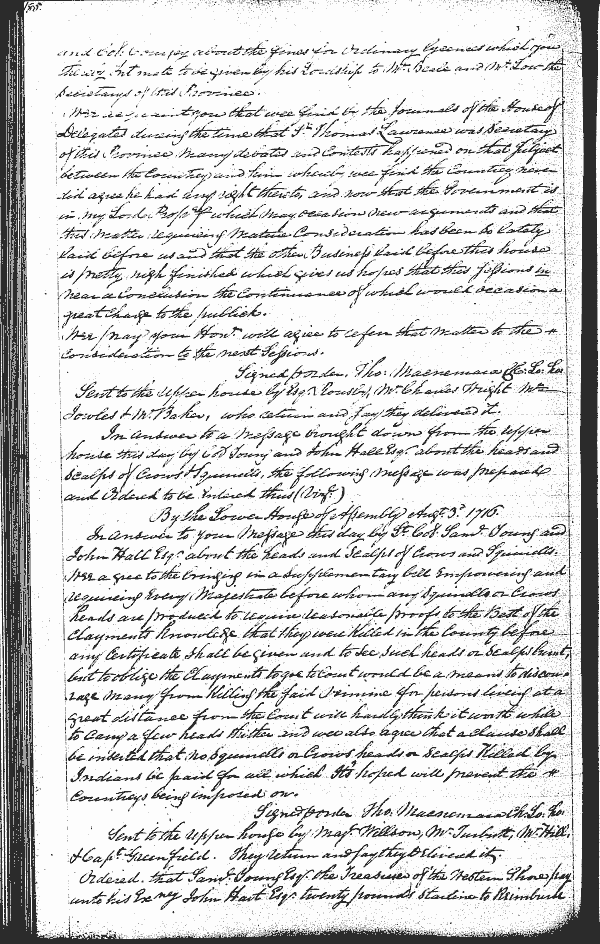 and Col: Compey about the fines for Ordinary Lycences which you
thereby Intimate to be given by his Lordship to Mr. Beale and Mr. Low the
Secretarys of this Province.
Wee acquaint you that wee find by the Journals of the House of
Delegates dureing the time that Sr. Thomas Lawrence was Secretary
of this Province many debates and Contests happened on that Subject
between the Country and him whereby wee find the Country never
did agree he had any right thereto, and now that the Government is
in my Lord Propry. which may occasion new arguments and that
this Matter requireing Mature Consideration has been but lately
laid before us and that the other Business laid before this house
is pretty nigh finished which gives us hopes that this Sessions is
near a Conclusion the Continuance of which would occasion a
great Charge to the publick.
Wee pray your Honrs. will agree to refer that Matter to the
Consideration to the next Sessions.
Signed p order, Tho: Macnemara Cl: Lo: Ho:
Sent to the Upper house by Esqr. Rousby, Mr. Charles Wright Mr.
Jowles & Mr. Baker, who return and say they delivered it.
In Answer to a Message brought down from the Upper
house this day by Col Young and John Hall Esqr. about the heads and
Scalps of Crows & Squirills, the following Message was prepared
and Ordered to be Entered thus (Vizt.)
By the Lower House of Assembly Augt. 3d. 1716.
In Answer to your Message this day by Lt. Col. Saml. Young and
John Hall Esqr. about the heads and Scalps of Crows and Squirills.
Wee agree to the bringing in a Supplementary bill Empowering and
requireing Every Magestrate before whom any Squirills or Crows
heads are produced to require reasonable proofs to the Best of the
Clayments Knowledge that they were Killed in the County before
any Certificate shall be given and to See Such heads or Scalps burnt,
but to oblige the Clayments to goe to Court would be a means to discou=
rage many from Killing the said Vermine for persons liveing at a
great distance from the Court will hardly think it worth while
to Carry a few heads thither and wee also agree that a Clause Shall
be inserted that no Squirills or Crows heads or Scalps Killed by
Indians be paid for all which It's hoped will prevent the
Countrys being imposed on.
Signed p order Tho. Macnemara Cl: Lo: Ho:
Sent to the Upper house by Majr. Willson, Mr. Turbutt, Mr. Hill
& Capt. Greenfield. They return and say they delivered it.
Ordered that Saml. Young Esqr. the Treasurer of the Western Shore pay
unto his Exncy John Hart Esqr. twenty pounds Starline to Reimburse